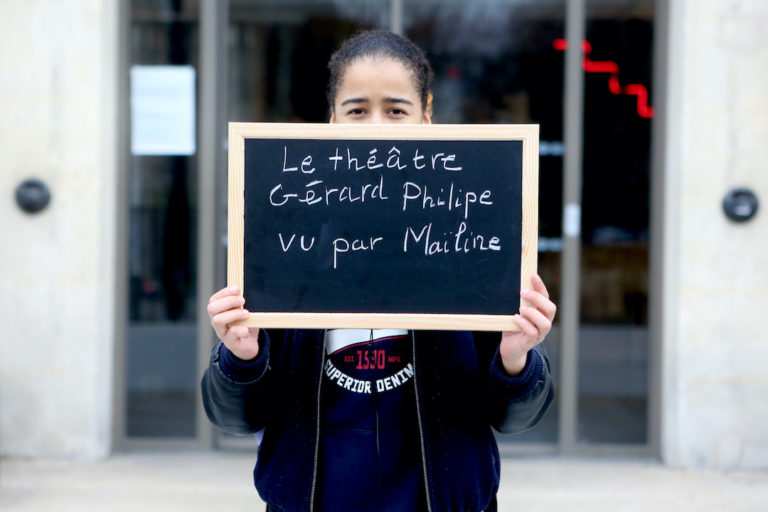 Le théâtre
Gérard Philipe
vu par Maïline
EST. 1590 MFG
SUPERIOR DENIM